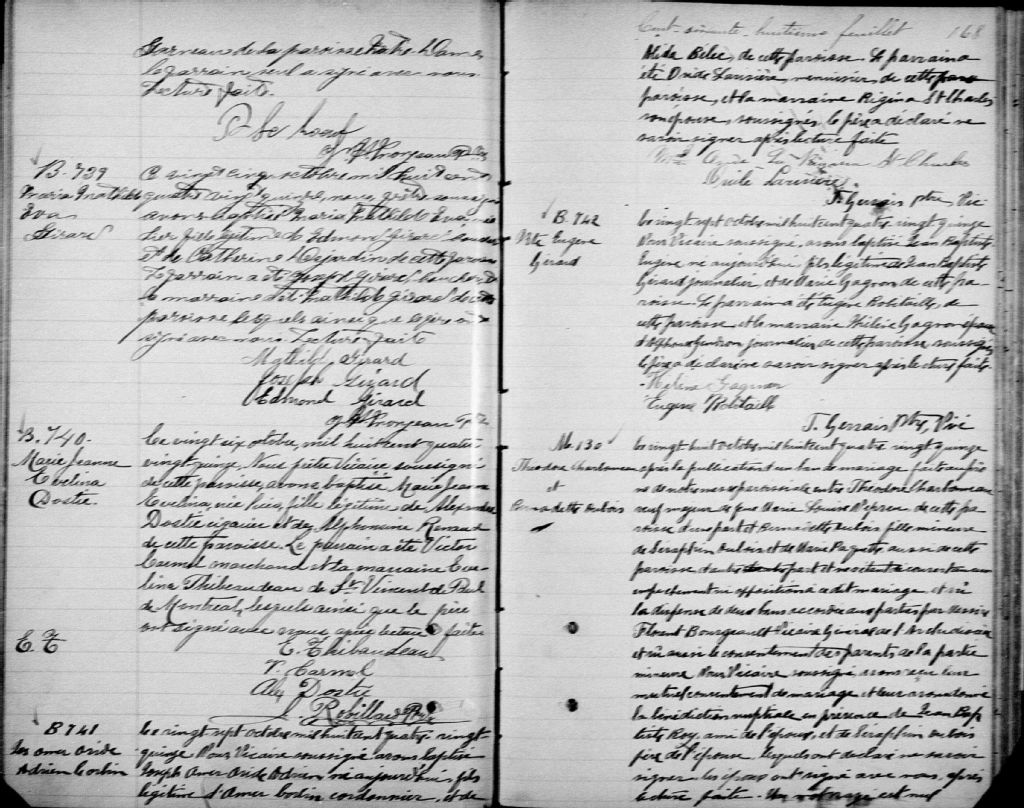 de la paroisse Notre Dame
le parrain seul a signé avec nous
Lecture faite.
B. 739
Girard
Eva
Ce vingt cinq octobre mil huit cent
quatre vingt quinze, nous prêtre soussigné
avons baptisé Maria
fille légitime de Edmond Girard
et de Catherine Desjardins de cette paroisse
Le parrain a été Joseph Girard
la marraine Mathilde Girard de cette
paroisse lesquels ainsi que le père ont
signé avec nous. Lecture faite
Mathilde Girard
Joseph Girard
Edmond Girard
B. 740.
Marie Jeanne
Evelina
Dostie.
Le vingt six octobre, mil huit cent quatre
vingt quinze. Nous prêtre Vicaire soussigné
de cette paroisse, avons baptisé Marie Jeanne
Evelina, née hier, fille légitime de Alexandre
Dostie cigarier et de Alphonsine Renaud
de cette paroisse. Le parrain a été Victor
Carmel marchand et la marraine Eve-
lina Thibaudeau de St. Vincent de Paul
de Montréal, lesquels ainsi que le père
ont signé avec nous, après lecture faite
E. T.
E. Thibaudeau
V. Carmel
Alex Dostie
J. Robillard Ptre
B 741
Jos Omer Ovide
Adrien Bodin
Le vingt sept octobre mil huit cent quatre vingt
quinze Nous Vicaire soussigné avons baptisé
Joseph Omer Ovide Adrien, né aujourd'hui, fils
légitime d'Omer Bodin cordonnier, et de
Cent-soixante-huitième feuillet 168
de cette paroisse. Le parrain a
été Ovide Larivière, menuisier, de cette
paroisse, et la marraine Régina St Charles
son épouse, soussignés, le père a déclaré ne
savoir signer après lecture faite
St Charles
Ovide Larivière.
T. Gervais ptre Vic
B. 742
Bte Eugène
Gérard
Le vingt sept octobre mil huit cent quatre vingt quinze
Nous Vicaire soussigné, avons baptisé Jean Baptiste
Eugène né aujourd'hui, fils légitime de Jean Baptiste
Gérard journalier, et de Marie Gagnon de cette pa-
roisse. Le parrain a été Eugène Robitaille, de
cette paroisse, et la marraine Hélène Gagnon épouse
d'Alphonse Gendron journalier de cette paroisse, soussignés
le père a déclaré ne savoir signer après lecture faite.
Hélène Gagnon
Eugène Robitaille
T. Gervais ptre, Vic
M. 130
Théodore Charbonneau
et
Bernadette Dubois
Le vingt huit octobre mil huit cent quatre vingt quinze
après la publication d'un ban de mariage faite au prô-
ne de notre messe paroissiale entre Théodore Charbonneau
veuf majeur de feue Marie Louise de cette pa-
roisse d'une part et Bernadette Dubois fille mineure
de Séraphin Dubois et de Marie Paquette aussi de cette
paroisse d'autre part et ne s'étant découvert aucun
empêchement ni opposition à ce dit mariage et vu
la dispense de deux bans accordée aux parties par Messire
Florent Bourgeault Vicaire Général de l'Archidiocèse
et vu aussi le consentement des parents de la partie
mineure Nous Vicaire soussigné avons reçu leur
mutuel consentement de mariage et leur avons donné
la bénédiction nuptiale en présence de Jean Bap-
tiste Roy, ami de l'époux, et de Séraphin Dubois
père de l'épouse lesquels ont déclaré ne savoir
signer les époux ont signé avec nous, après
lecture faite. Un est nul